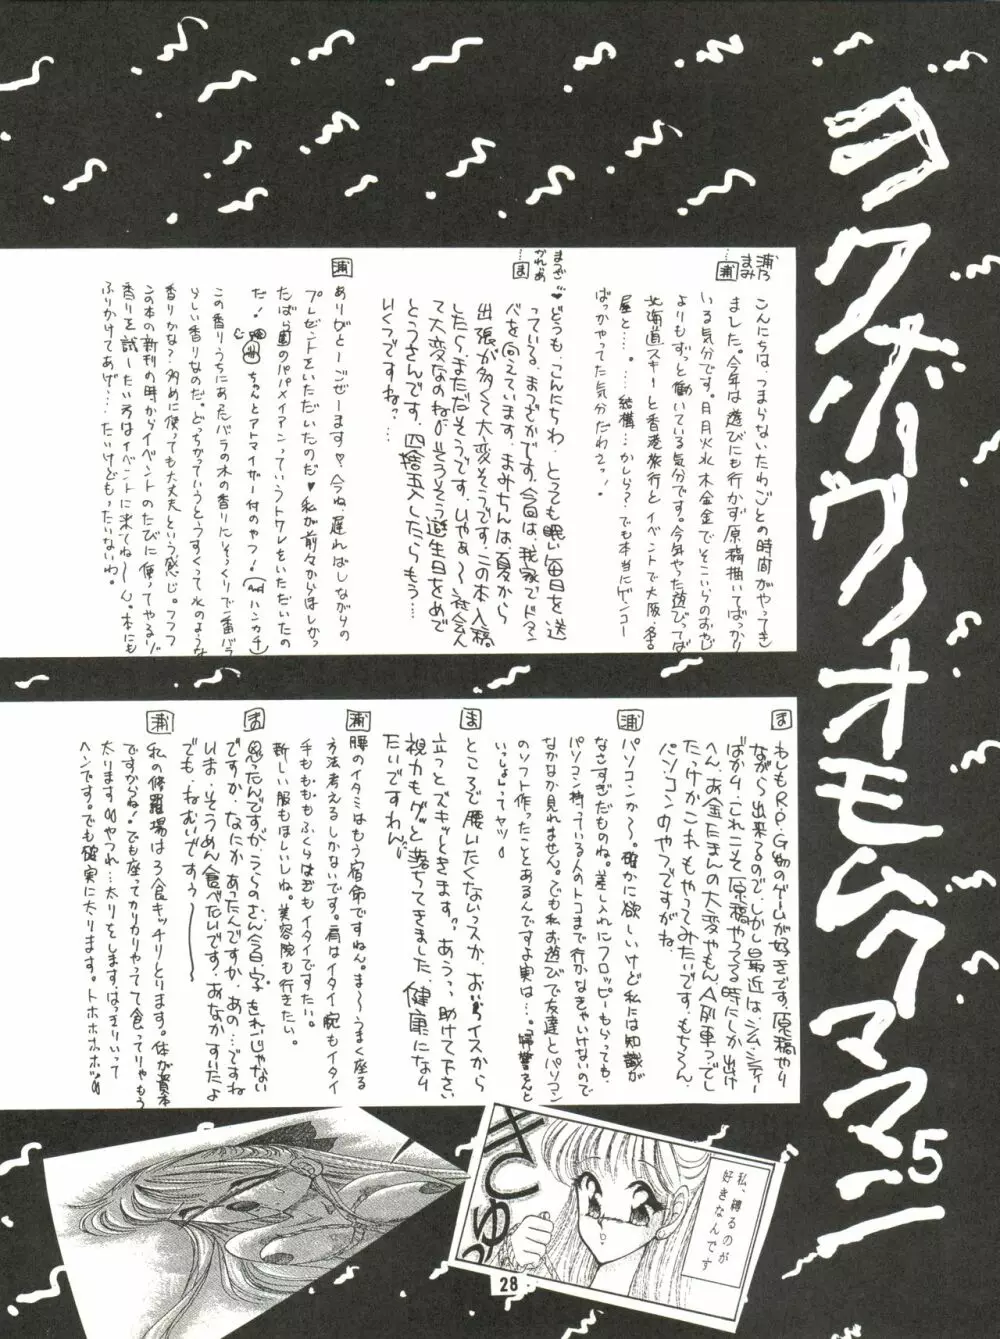 ヨクボーヴリオモムクママー5
浦乃まみ…浦
こんにちは、つまらないたわごとの時間がやってき
ました。今年は遊びにも行かず原稿描いてばっかり
いる気分です。月月火水木金金でそこいらのおやじ
よりもずっと働いている気分です。今年やった遊びってば
北海道スキーと香港旅行とイベントで大阪、名古
屋と…。……結構…かしら?でも本当にゲンコー
ばっかやってた気分だわさっ!
まつざかれあ…ま
♥どうも、こんにちわ、とっても眠い毎日を送
っている、まつざかです。今回は、我家でドタン
バを向えています。まみちんは、夏から
出張が多くて大変そうです。この本入稿
したら、まただそうです。ひゃぁ〜、社会人
て大変なのね。そうそう誕生日をめで
とうさんです。四捨五入したらもう…
いくつですね?…
浦
ありがとーごぜーます♡。今ね、遅ればしながらの
プレゼントをいただいたのだ♥私が前々からほしかっ
たばら園のパパメイアンっていうトワレをいただいたの
だ!ちゃんとアトマイザー付のやつ!(ハンカチ)
この香り、うちにあったバラの木の香りにそっくりで一番バラ
らしい香りなのだ。どっちかっていうとうすくって水のような
香りかな?多めに使っても大丈夫という感じ。フフフ
この本の新刊の時からイベントのたびに使ってやるゾ
香りを試したい方はイベントに来てね〜ん。本にも
ふりかけてあげ……たいけどもったいないわ。
ま
わしもR.P.G物のゲームが好きです。原稿やり
ながら出来るので。しかし最近は、シムシティー
ばかり。これこそ原稿やってる時にしか出け
へん、お金たまんの大変やもん。A列車ってでし
たっけか、これもやってみたいです。もちろん、
パソコンのやつですがね。
浦
パソコンか〜〜。確かに欲しいけど私には知識が
なさすぎだものね。差しふれにフロッピーもらっても、
パソコン持っている人のトコまで行かなきゃいけないので
なかなか見れません。でも私お遊びで友達とパソコン
のソフト作ったことあるんですよ実は…。
いっしょってヤツ。
ま
ところで腰いたくないっスか、おい、イスから
立っとズキッときます?あうっっ助けて下さい
視力もグッと落ちてきました。健康になり
たいですわん。
浦
腰のイタミはもう宿命ですねん。ま〜〜うまく座る
方法考えるしかないです。肩はイタイ腕もイタイ
手もももふくらはぎもイタイですたい。
新しい服もほしいしね。美容院も行きたい。
ま
思ったんですが、うらのさん今日、字、きれいじゃない
ですか、なんか、あったんですか、あの…ですね
いま、そうめん食べたいです、あなかすいたよ
でも、ねむいですぅ〜〜〜
浦
私の修羅場は3食キッチリとります。体が資本
ですからね!でも座ってカリカリやってて食ってりゃもう
太りますやつれ…太りをします。はっきりいって
ヘンです。でも確実に太ります。トホホホホ。
私、縛るのが
好きなんです
28